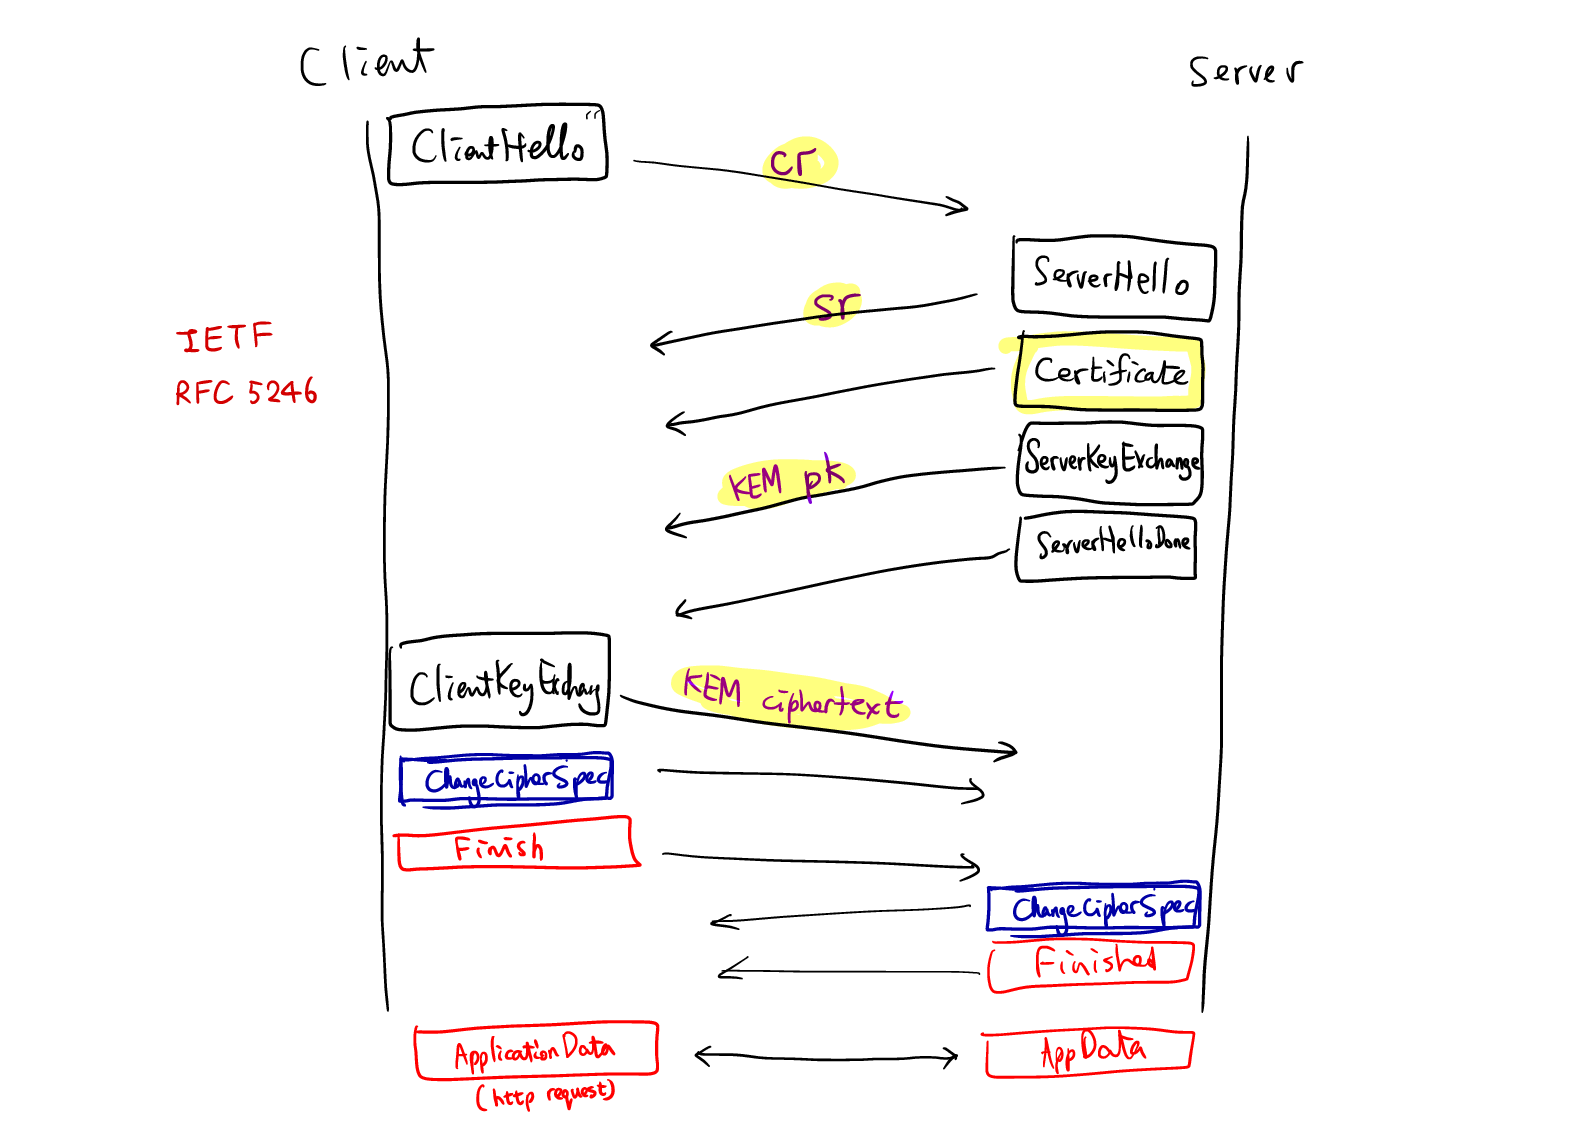 Client
Server
ClientHello
cr
ServerHello
sr
IETF
RFC 5246
Certificate
ServerKeyExchange
KEM pk
ServerHelloDone
ClientKeyExchang
KEM ciphertext
ChangeCipherSpec
Finish
ChangeCipherSpec
Finished
ApplicationData
AppData
(http request)